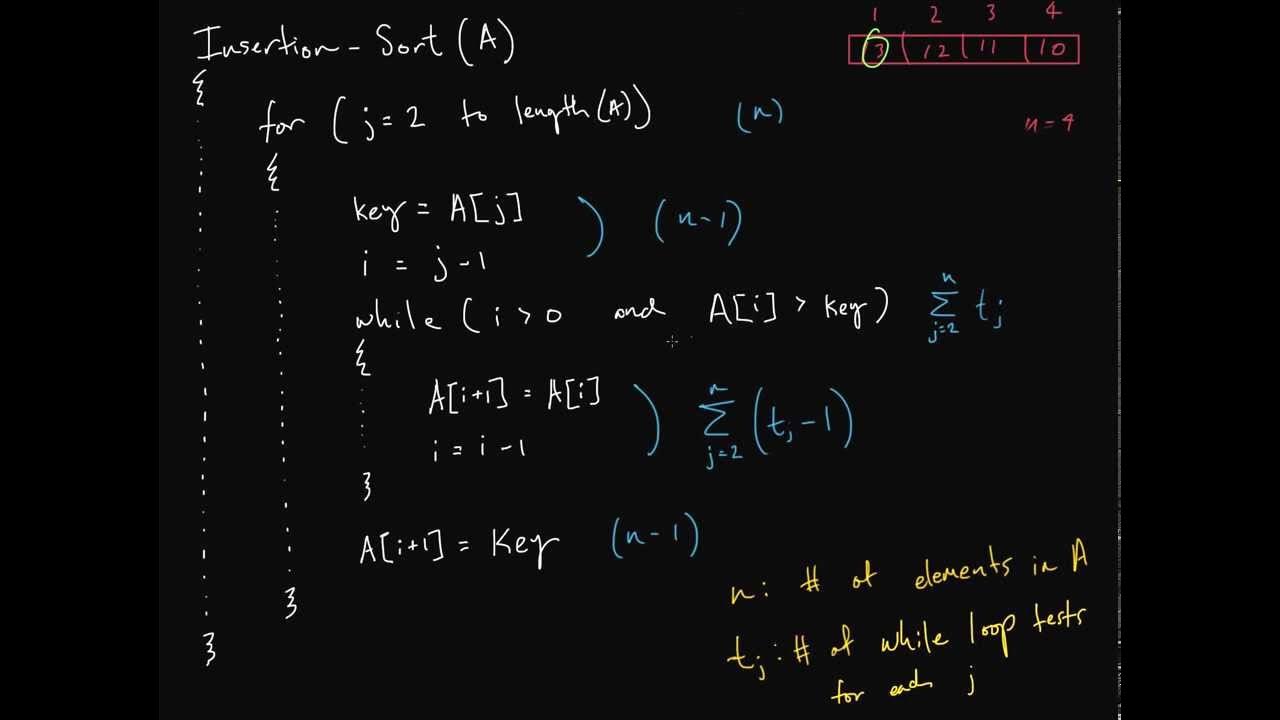 1 2 3 4
Insertion - Sort (A) 3 12 11 10
{
for (j = 2 to length(A)) (n) n = 4
{
key = A[j] ) (n-1)
i = j - 1
while ( i > 0 and A[i] > key) n ∑ j=2 t_j
{
A[i+1] = A[i] ) n ∑ j=2 (t_j - 1)
i = i - 1
}
A[i+1] = Key (n-1)
n: # of elements in A
}
t_j: # of while loop tests
}
for each j